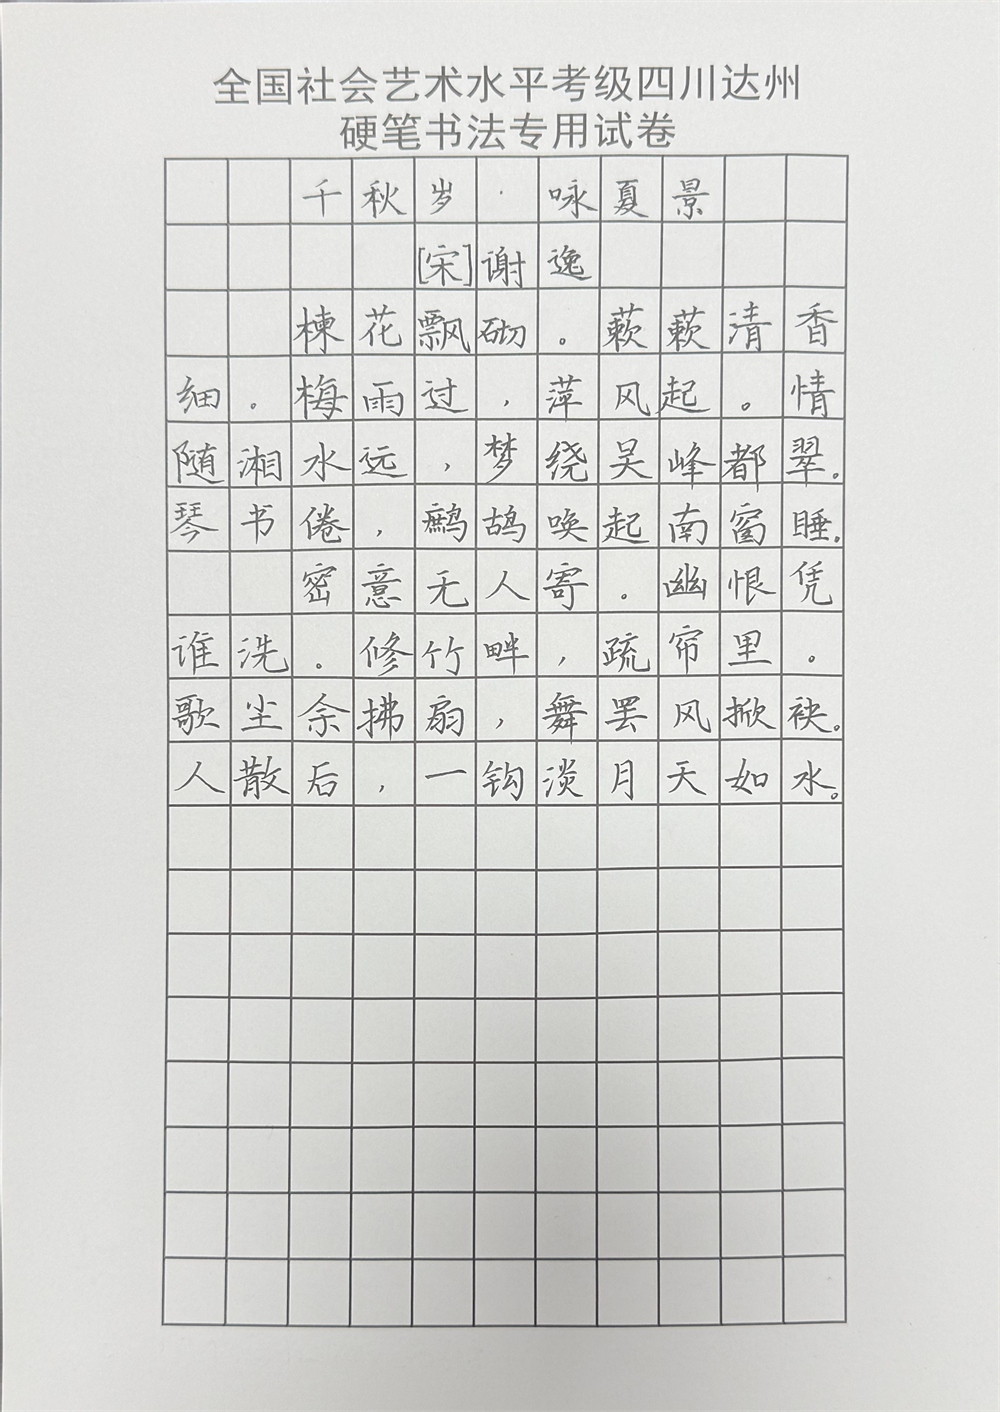 全国社会艺术水平考级四川达州
硬笔书法专用试卷
千秋岁·咏夏景
[宋]谢逸
楝花飘砌。蔌蔌清香
细。梅雨过，萍风起。情
随湘水远，梦绕吴峰都翠。
琴书倦，鹧鸪唤起南窗睡。
密意无人寄。幽恨凭
谁洗。修竹畔，疏帘里。
歌尘余拂扇，舞罢风掀袂。
人散后，一钩淡月天如水。